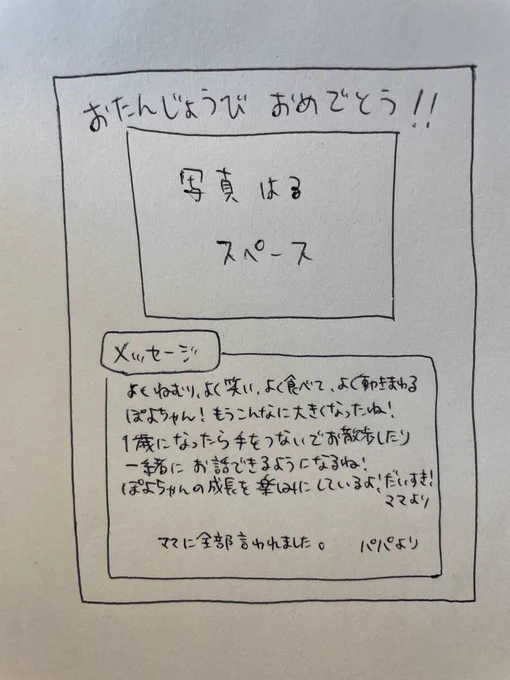 おたんじょうび おめでとう!!
写真 はる
スペース
メッセージ
よくねむり、よく笑い、よく食べて、よく動きまわる
ぽよちゃん!もうこんなに大きくなったね!
1歳になったら手をつないでお散歩したり
一緒に お話できるようになるね!
ぽよちゃんの成長を楽しみにしているよ!だいすき!
ママより
ママに全部言われました。 パパより